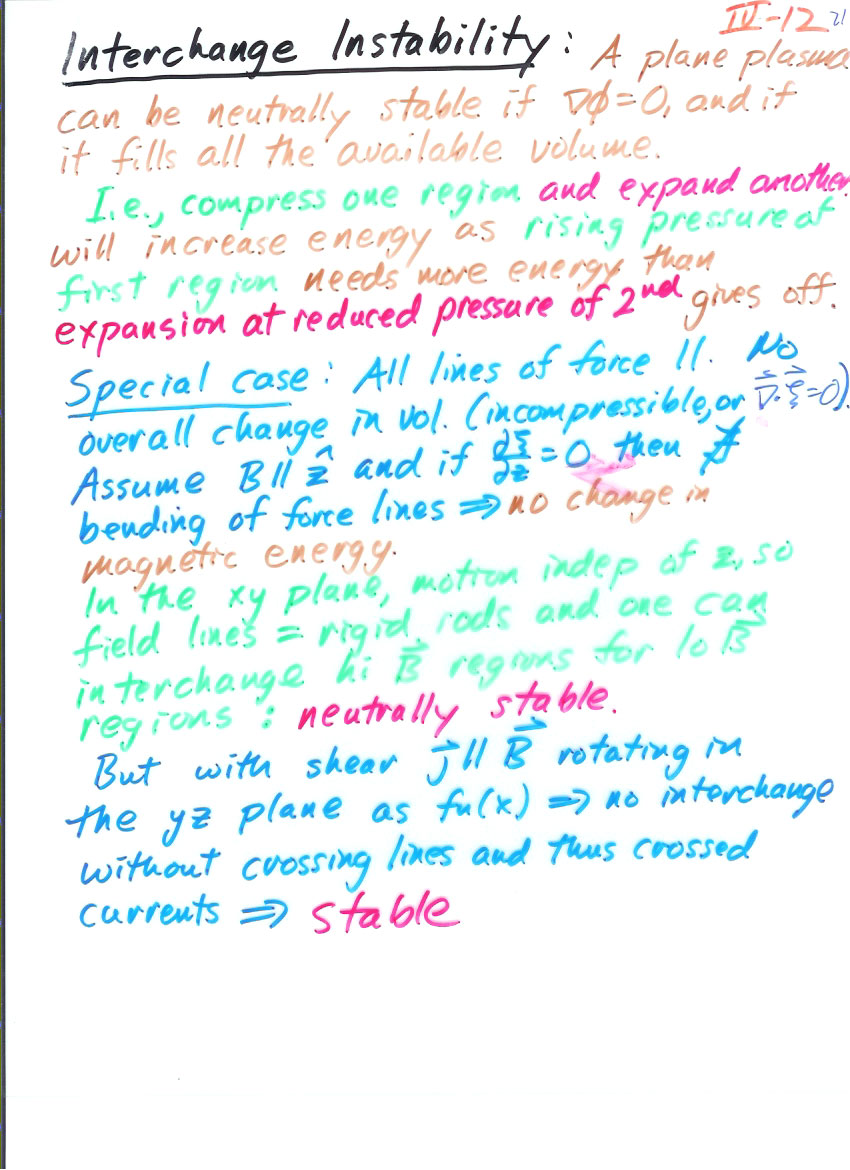 IV-12 21
Interchange Instability: A plane plasma
can be neutrally stable if ∇ϕ=0, and if
it fills all the available volume.
I.e., compress one region and expand another
will increase energy as rising pressure of
first region needs more energy than
expansion at reduced pressure of 2nd gives off.
Special case: All lines of force ||. No
overall change in vol. (incompressible, or ∇⃗·ξ⃗=0).
Assume B || ẑ and if ∂ξ/∂z = 0 then ∄
bending of force lines ⇒ no change in
magnetic energy.
In the xy plane, motion indep of z, so
field lines = rigid rods and one can
interchange hi B⃗ regions for lo B⃗
regions: neutrally stable.
But with shear j⃗ || B⃗ rotating in
the yz plane as fn(x) ⇒ no interchange
without crossing lines and thus crossed
currents ⇒ stable